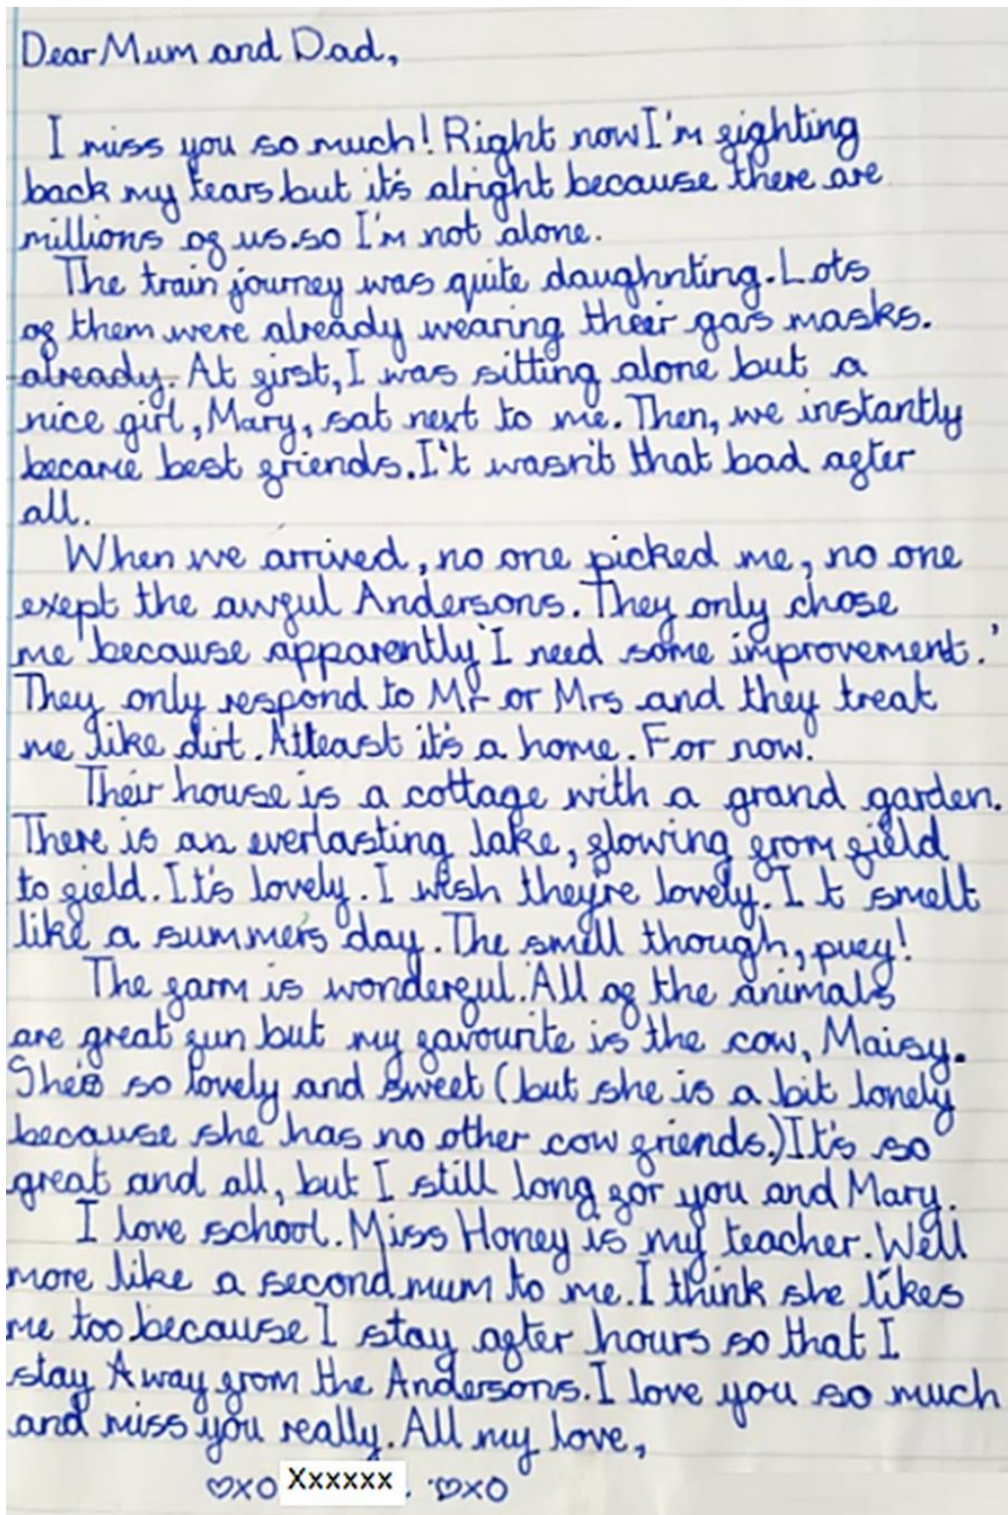 Dear Mum and Dad,
I miss you so much! Right now I'm fighting
back my tears but it's alright because there are
millions of us.so I'm not alone.
The train journey was quite daughnting. Lots
of them were already wearing their gas masks.
already. At first, I was sitting alone but a
nice girl, Mary, sat next to me. Then, we instantly
became best friends. I't wasn't that bad after
all.
When we arrived, no one picked me, no one
exept the awful Andersons. They only chose
me because apparently 'I need some improvement.'
They only respond to Mr or Mrs and they treat
me like dirt. Atleast it's a home. For now.
Their house is a cottage with a grand garden.
There is an everlasting lake, flowing from field
to field. It's lovely. I wish they're lovely. It smelt
like a summer's day. The smell though, puey!
The farm is wonderful. All of the animals
are great fun but my favourite is the cow, Maisy.
She's so lovely and sweet (but she is a bit lonely
because she has no other cow friends.) It's so
great and all, but I still long for you and Mary.
I love school. Miss Honey is my teacher. Well
more like a second mum to me. I think she likes
me too because I stay after hours so that I
stay Away from the Andersons. I love you so much
and miss you really. All my love,
♡XO Xxxxxx. ♡XO